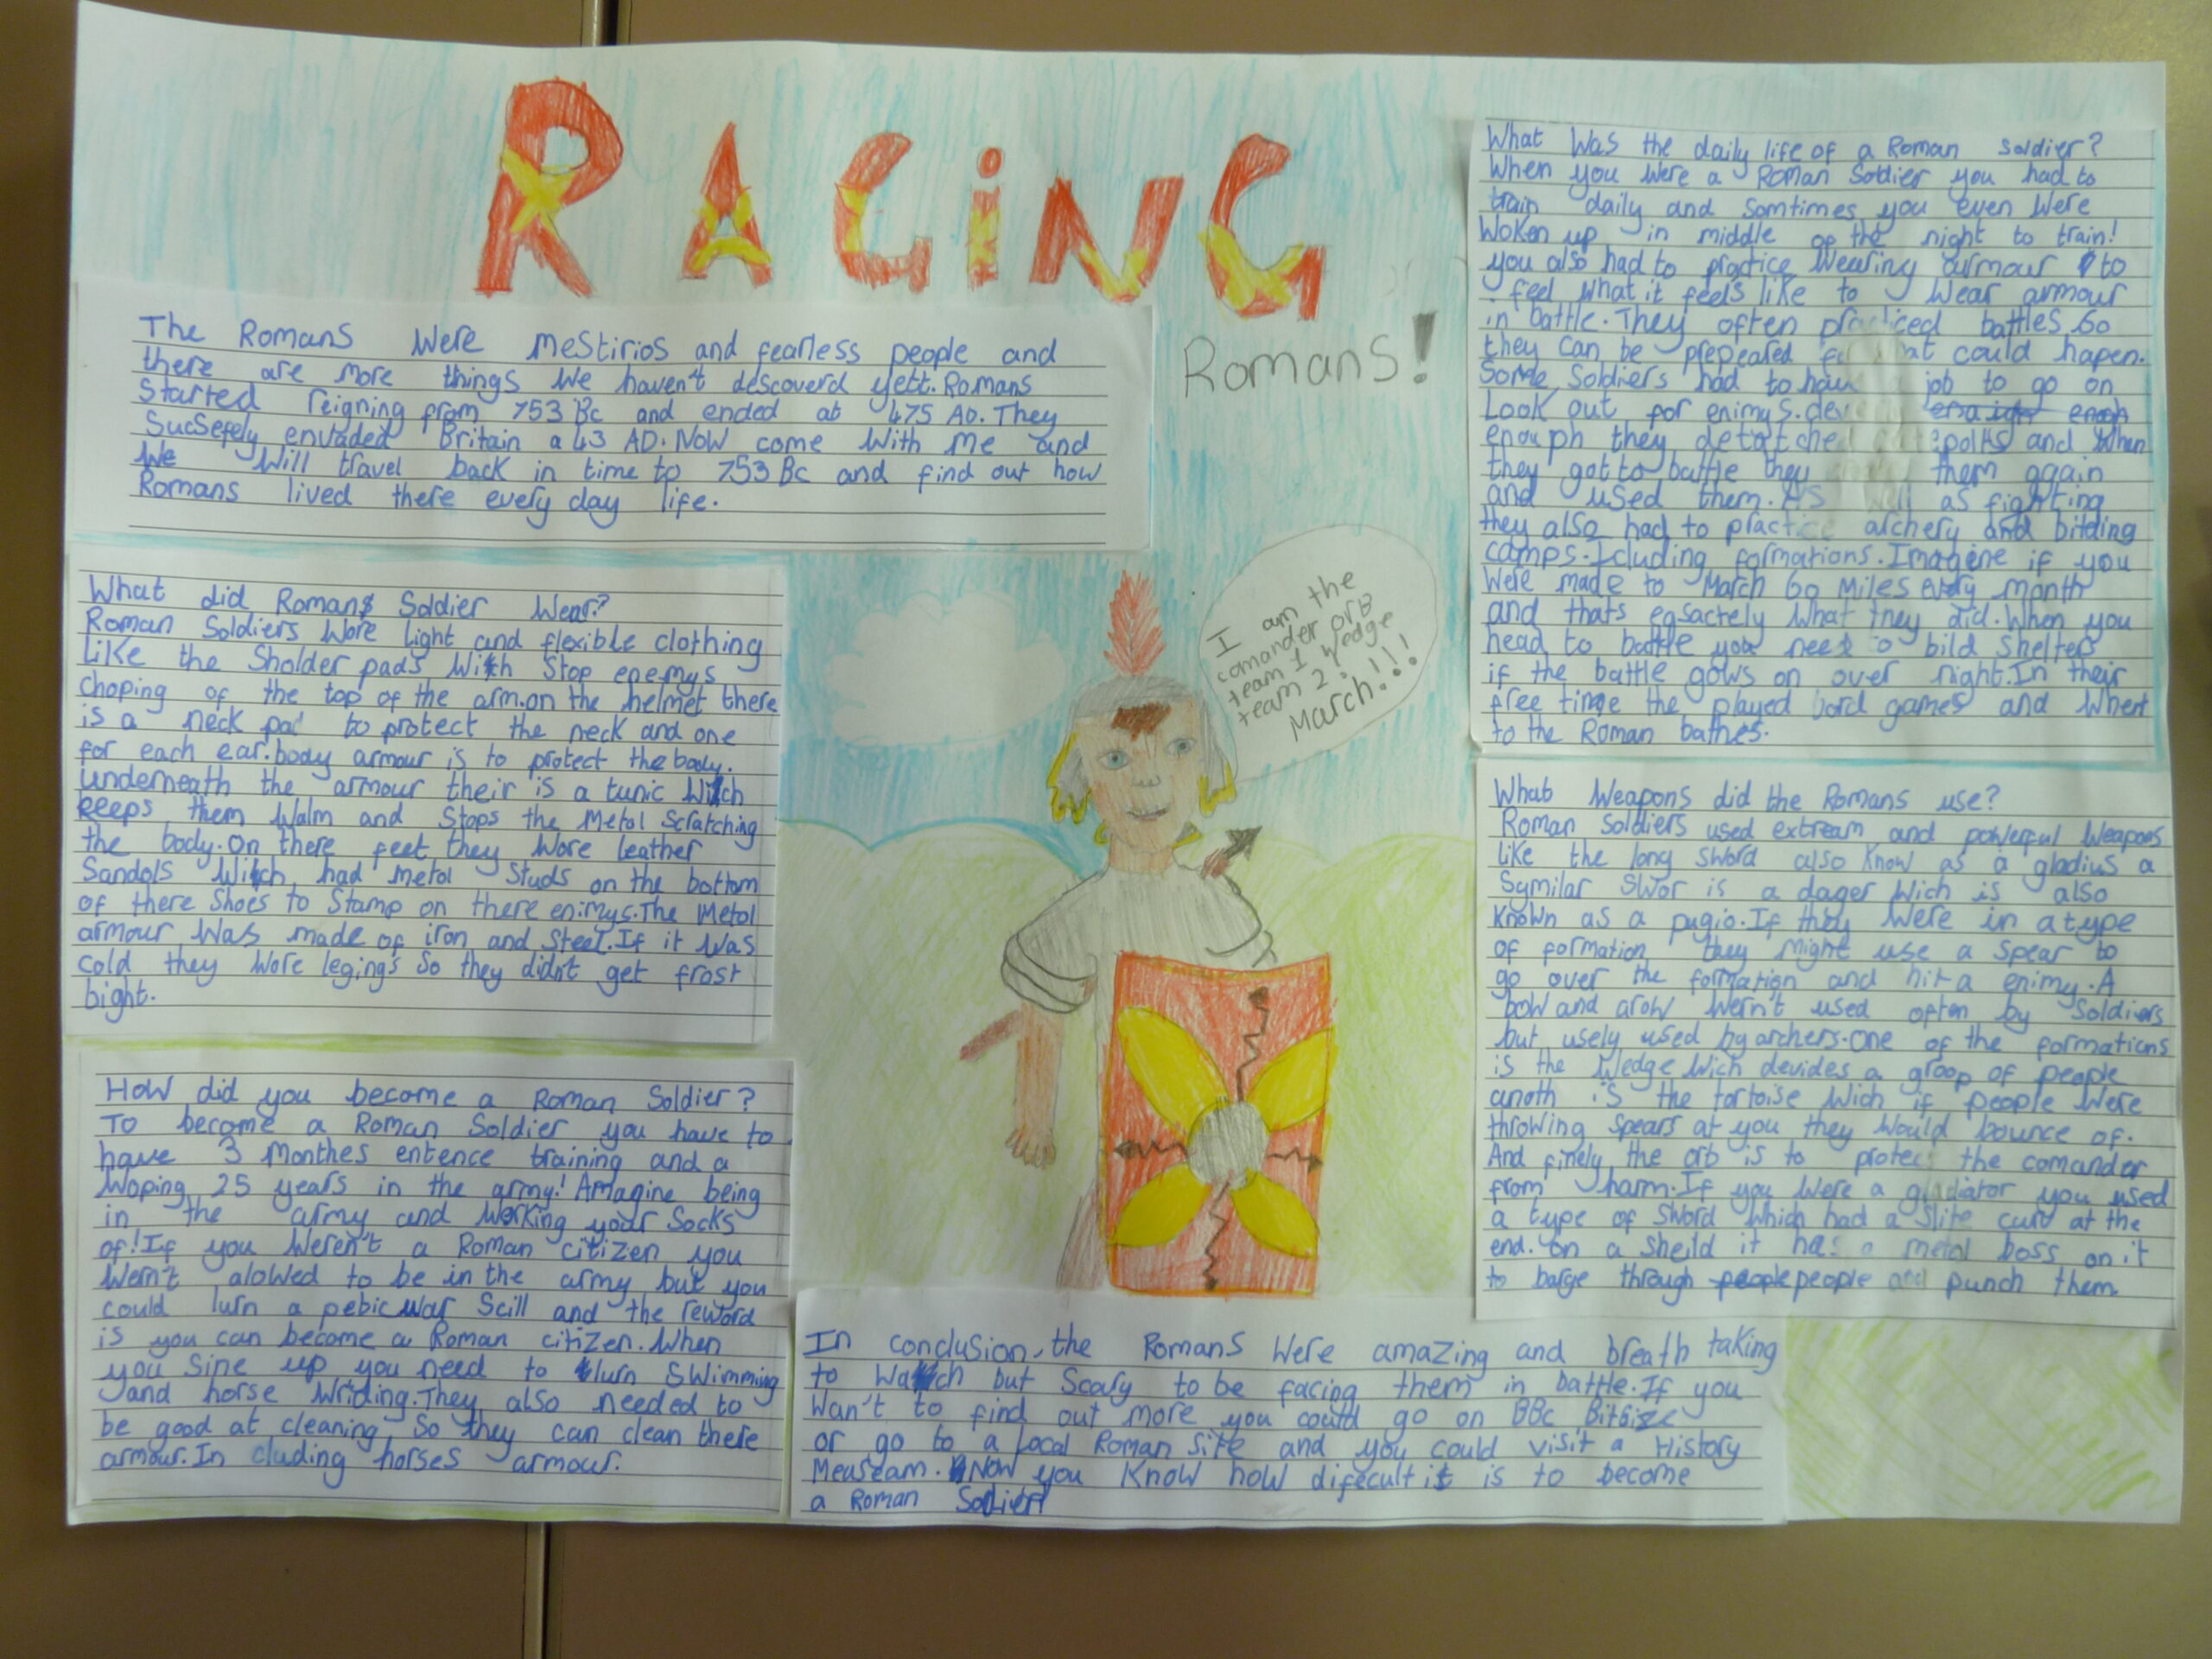 RAGiNG
Romans!
The Romans Were mestirios and fearless people and
there are more things we haven't descoverd yett. Romans
Started reigning from 753 Bc and ended at 475 AD. They
Sucsefely envaded Britain a 43 AD. Now come with me and
we will travel back in time to 753 Bc and find out how
Romans lived there every day life.
What did Romans Soldier wear?
Roman Soldiers wore light and flexible clothing
Like the Sholder pads witch Stop enemys
choping of the top of the arm.on the helmet there
is a neck pad to protect the neck and one
for each ear.body armour is to protect the body.
underneath the armour their is a tunic witch
keeps them walm and Stops the metol Scratching
the body. On there feet they wore leather
Sandols witch had metol Studs on the bottom
of there Shoes to Stamp on there enimys. The metol
armour was made of iron and Steel. If it was
cold they wore legings So they didn't get frost
bight.
How did you become a Roman Soldier?
To become a Roman Soldier you have to
have 3 monthes entence training and a
woping 25 years in the army! Amagine being
in the army and working your Socks
of! If you weren't a Roman citizen you
wern't alowed to be in the army but you
could lurn a pebic war Scill and the reword
is you can become a Roman citizen. When
you Sine up you need to lurn Swimming
and horse wriding. They also needed to
be good at cleaning So they can clean there
armour. In cluding horses armour.
I am the
comander orb
team 1 wedge
team 2!
March!!!
What Was the daily life of a Roman Soldier?
When you were a Roman Soldier you had to
train daily and Somtimes you even were
woken up in middle of the night to train!
you also had to practice wearing armour to
feel what it feels like to wear armour
in battle. They often practiced battles So
they can be prepeared could hapen.
Some Soldiers had to job to go on
Look out for enimys. enogh
enouph they detatched and when
they got to battle they them again
and used them. As well as fighting
they also had to practice archery and bilding
camps. Icluding formations. Imagene if you
were made to march 60 miles every month
and thats egsactely what they did. When you
head to battle you need to bild Shelters
if the battle gows on over night. In their
free time the played bord games and whent
to the Roman bathes.
What Weapons did the Romans use?
Roman Soldiers used extream and powerful weapons
like the long sword also know as a gladius a
Symilar Swor is a dager wich is also
known as a pugio. If they were in a type
of formation they might use a Spear to
go over the formation and hit a enimy. A
bow and arow wern't used often by Soldiers
but usely used by archers. One of the formations
is the wedge wich devides a groop of people
anoth is the tortoise wich if people were
throwing Spears at you they would bounce of.
And finely the orb is to protect the comander
from harm. If you were a gladiator you used
a type of Sword which had a Slite curv at the
end. On a Sheild it has a metal boss on it
to barge through people and punch them
In conclusion, the Romans were amazing and breath taking
to watch but Scary to be facing them in battle. If you
wan't to find out more you could go on BBc Bitsize
or go to a local Roman Site and you could visit a History
Measeam. Now you Know how difecult it is to become
a Roman Soldier